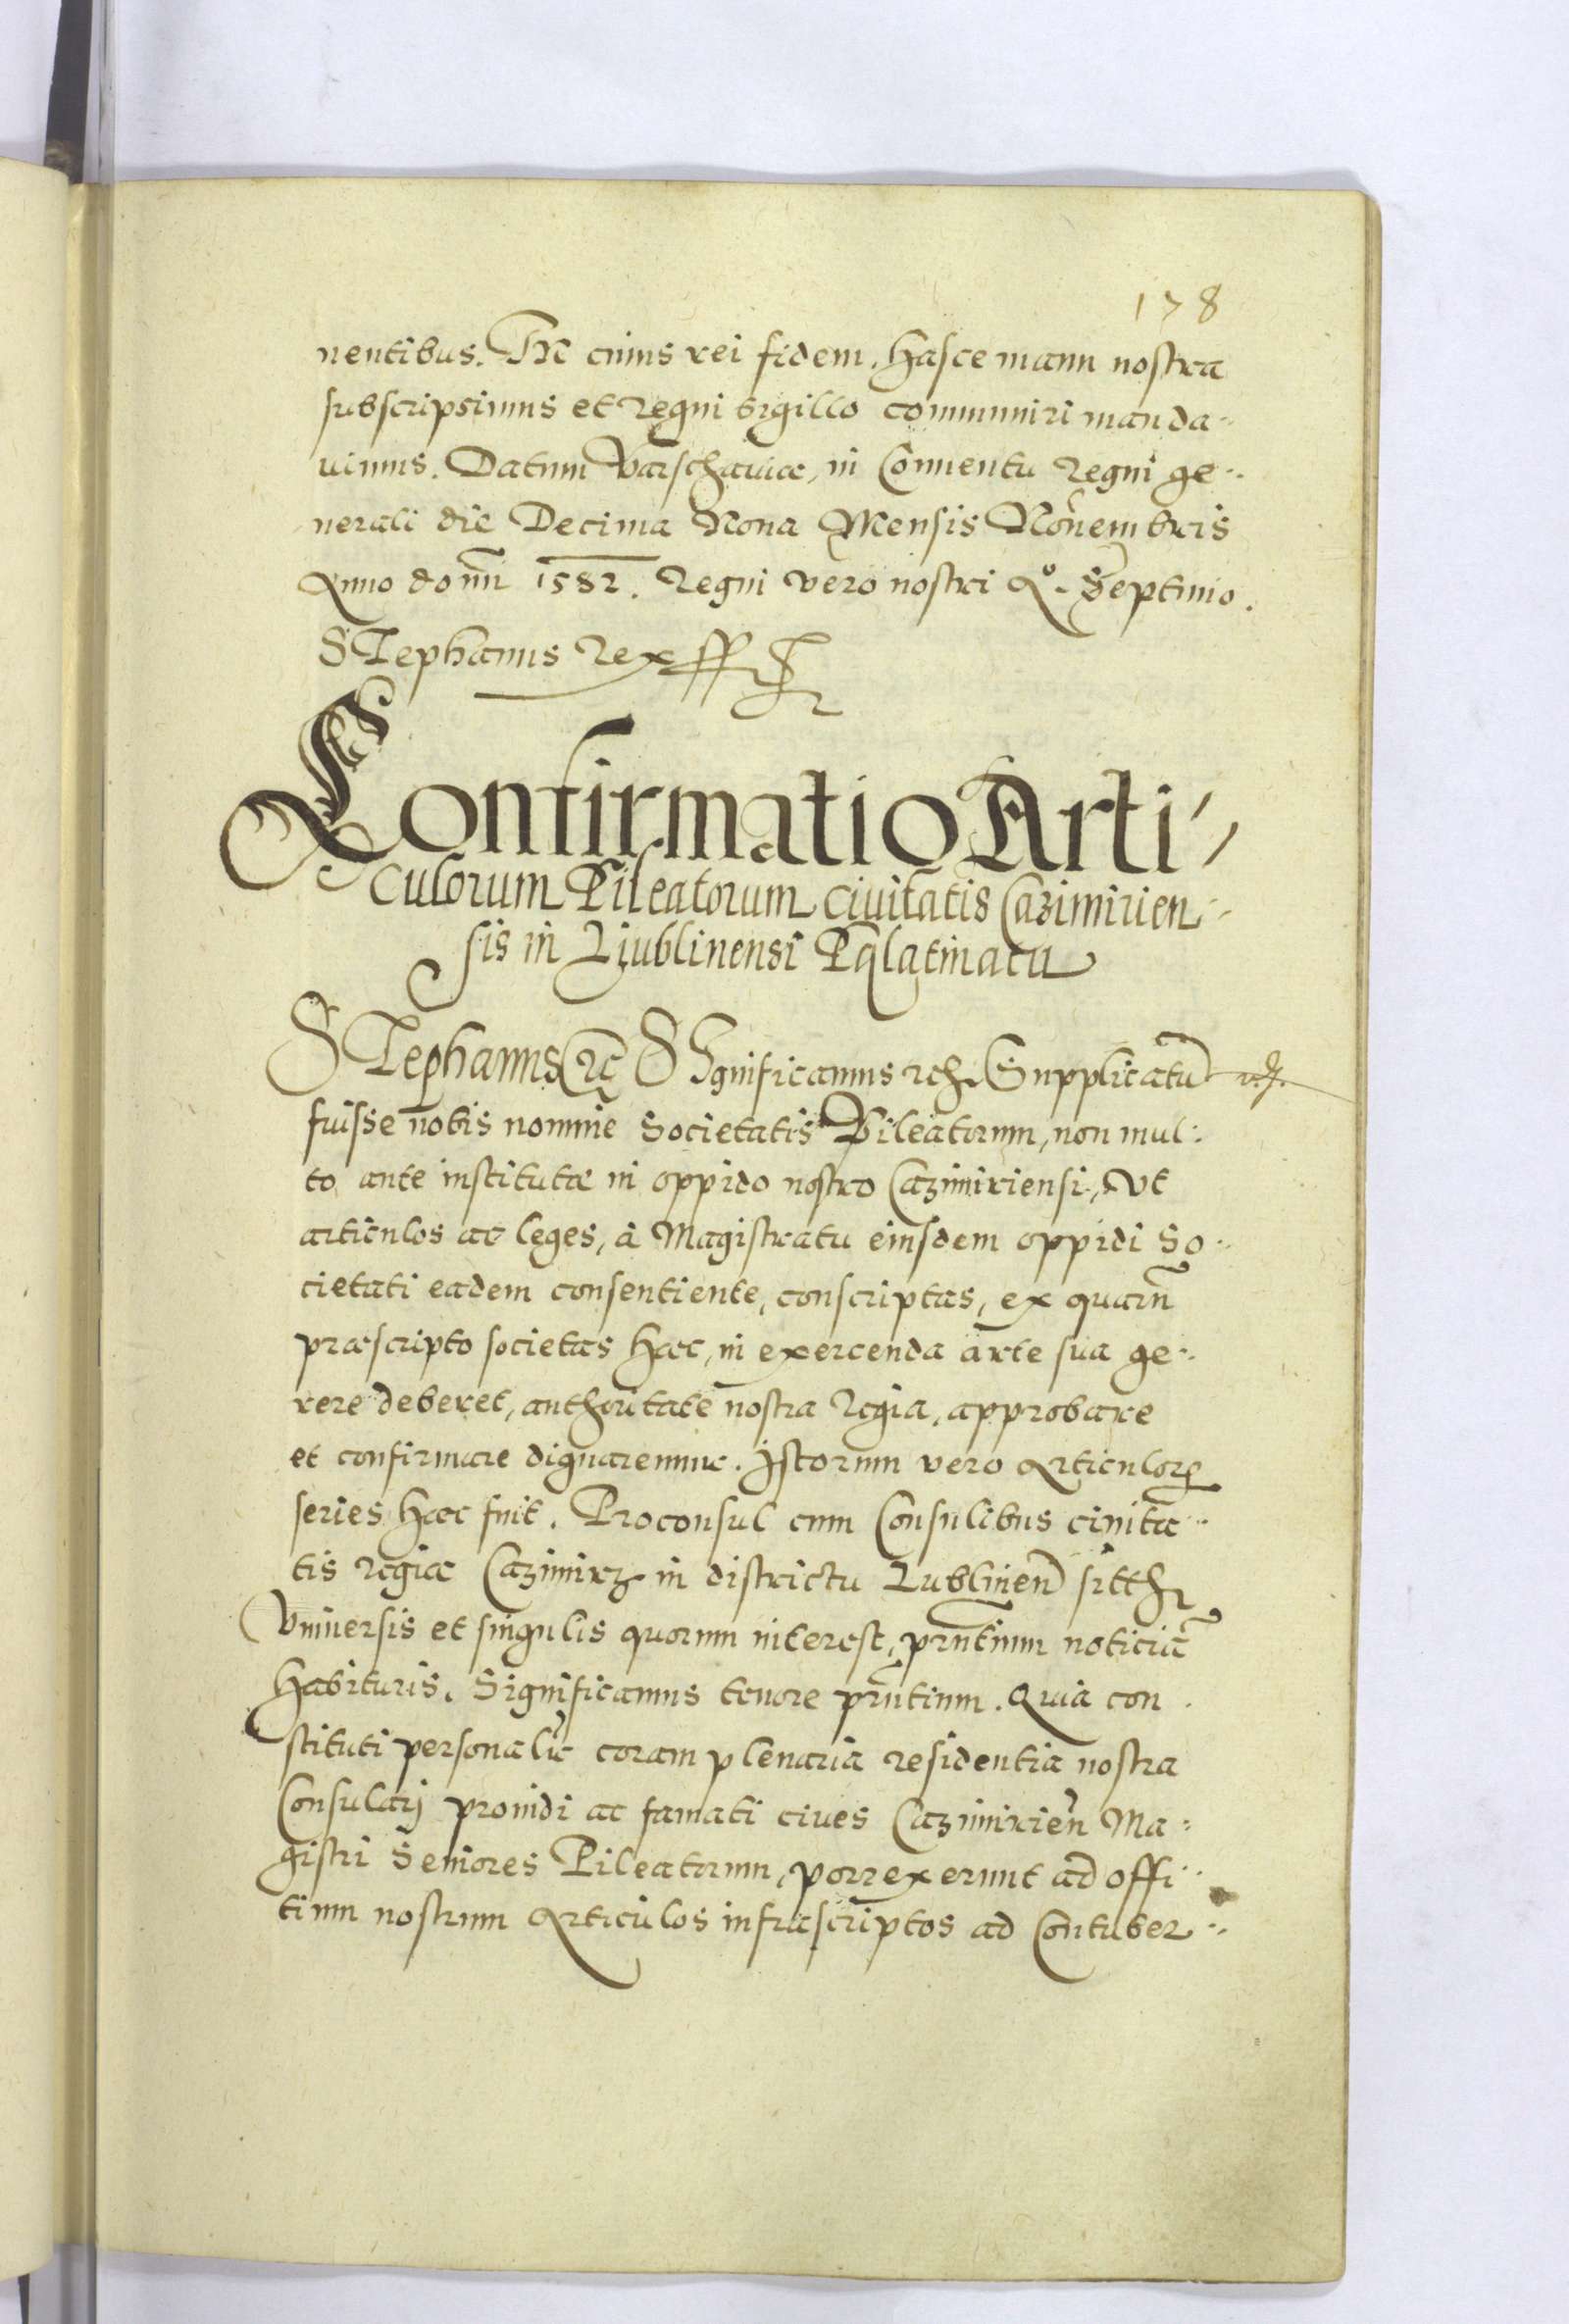 178
nentibus. IN cuius rei fidem, hasce manu nostra
subscripsimus et Regni sigillo communiri manda-
uimus. Datum Varschauiae, in Conuentu Regni ge-
nerali die Decima Nona Mensis Nouembris
Anno domi 1582. Regni vero nostri Ao. Septimo.
STephanus Rex
Confirmatio Arti-
culorum Pileatorum Ciuitatis Cazimirien-
sis in Liublinensi Palatinatu
STephanus etc SIgnificamus etc. Supplicatu
fuisse nobis nomine Societatis Pileatorum, non mul-
to ante institutae in oppido nostro Cazimiriensi, Vt
articulos ac leges, a Magistratu eiusdem oppidi So-
cietati eadem consentiente, conscriptas, ex quarum
praescripto societas haec, in exercenda arte sua ge-
rere deberet, authoritate nostra Regia, approbare
et confirmare dignaremur. Istorum vero Articulor
series haec fuit. Proconsul cum Consulibus ciuita-
tis Regiae Cazimirz in districtu Lublinen
Vniuersis et singulis quorum interest, prntium noticia
habituris. Significamus tenore prntium. Quia con-
stituti personalr coram plenaria residentia nostra
Consularj prouidi ac famati ciues Cazimirien Ma-
gistri Seniores Pileatorum, porrexerunt ad offi-
tium nostrum Articulos infrascriptos ad Contuber-